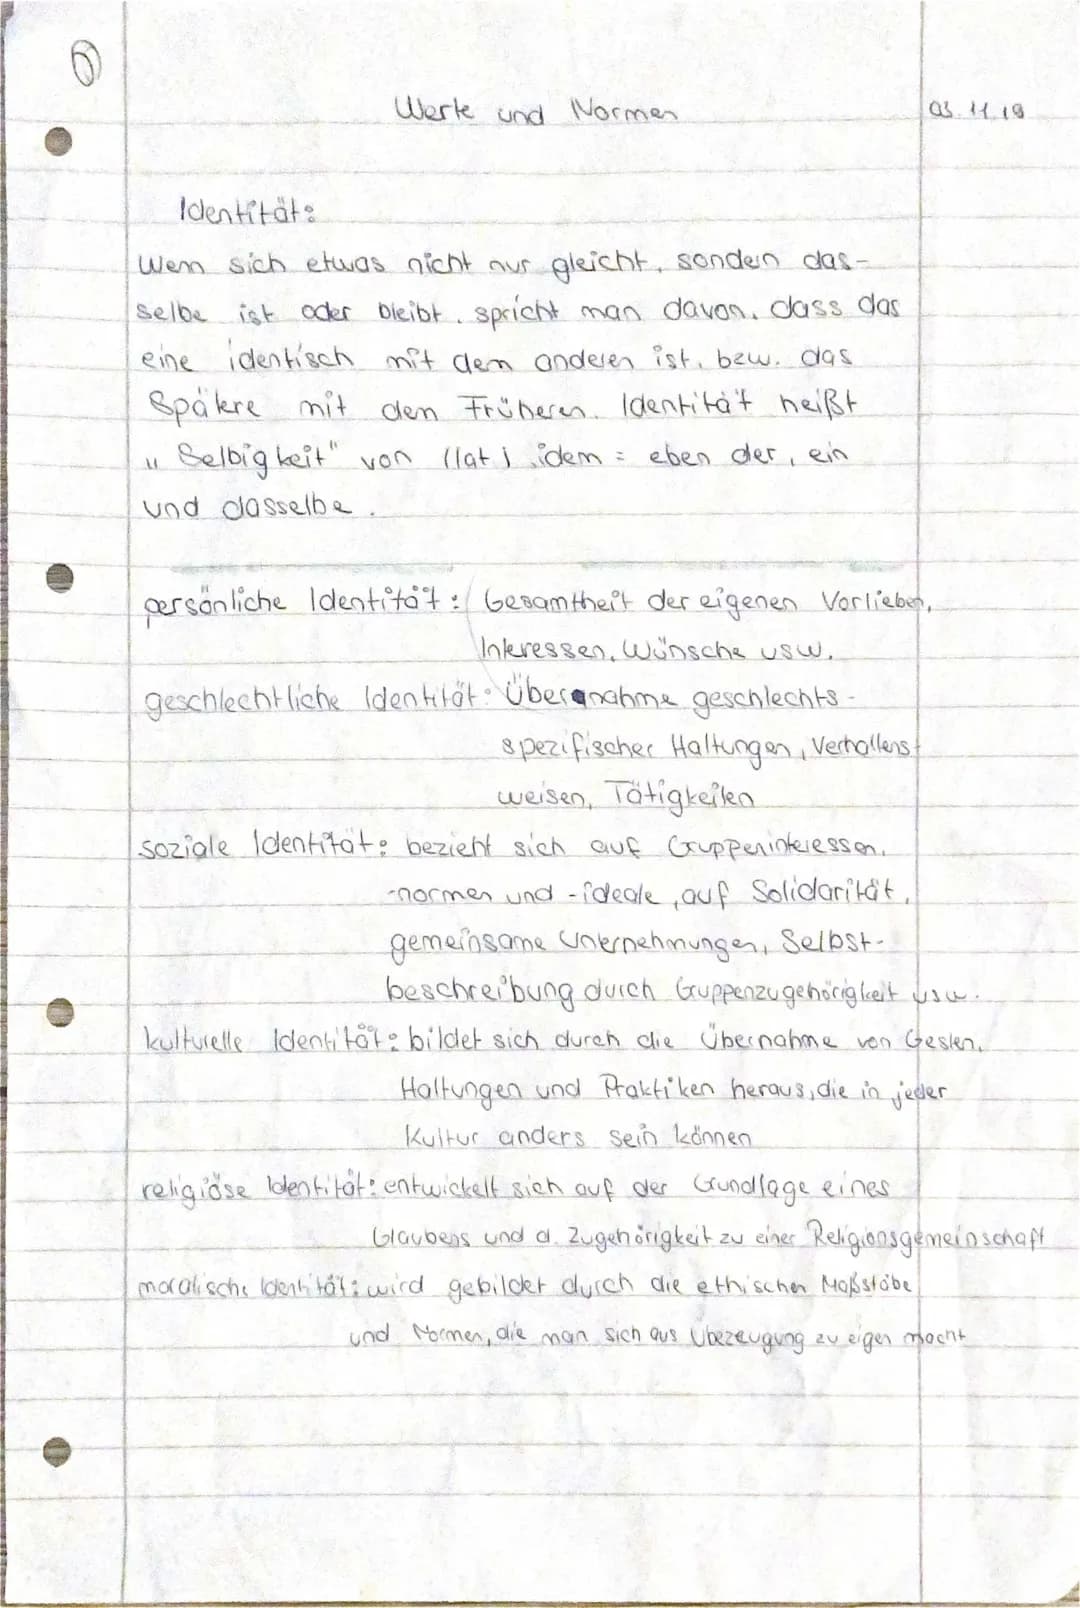 6
Werte und Normen
03.11.19
Identität:
Wenn sich etwas nicht nur gleicht, sondern das-
selbe ist oder bleibt, spricht man davon, dass das
eine identisch mit dem anderen ist, bzw. das
Spätere mit dem Früheren. Identität heißt
„Selbigkeit" von (lat.) idem = eben der, ein
und dasselbe.
persönliche Identität: Gesamtheit der eigenen Vorlieben,
Interessen, Wünsche usw.
geschlechtliche Identität: Übernahme geschlechts-
spezifischer Haltungen, Verhaltens-
weisen, Tätigkeiten
soziale Identität: bezieht sich auf Gruppeninteressen,
-normen und -ideale, auf Solidarität,
gemeinsame Unernehmungen, Selbst-
beschreibung durch Gruppenzugehörigkeit usw.
kulturelle Identität: bildet sich durch die Übernahme von Gesten,
Haltungen und Praktiken heraus, die in jeder
Kultur anders sein können
religiöse Identität: entwickelt sich auf der Grundlage eines
Glaubens und d. Zugehörigkeit zu einer Religionsgemeinschaft
moralische Identität: wird gebildet durch die ethischen Maßstäbe
und Normen, die man sich aus Übezeugung zu eigen macht